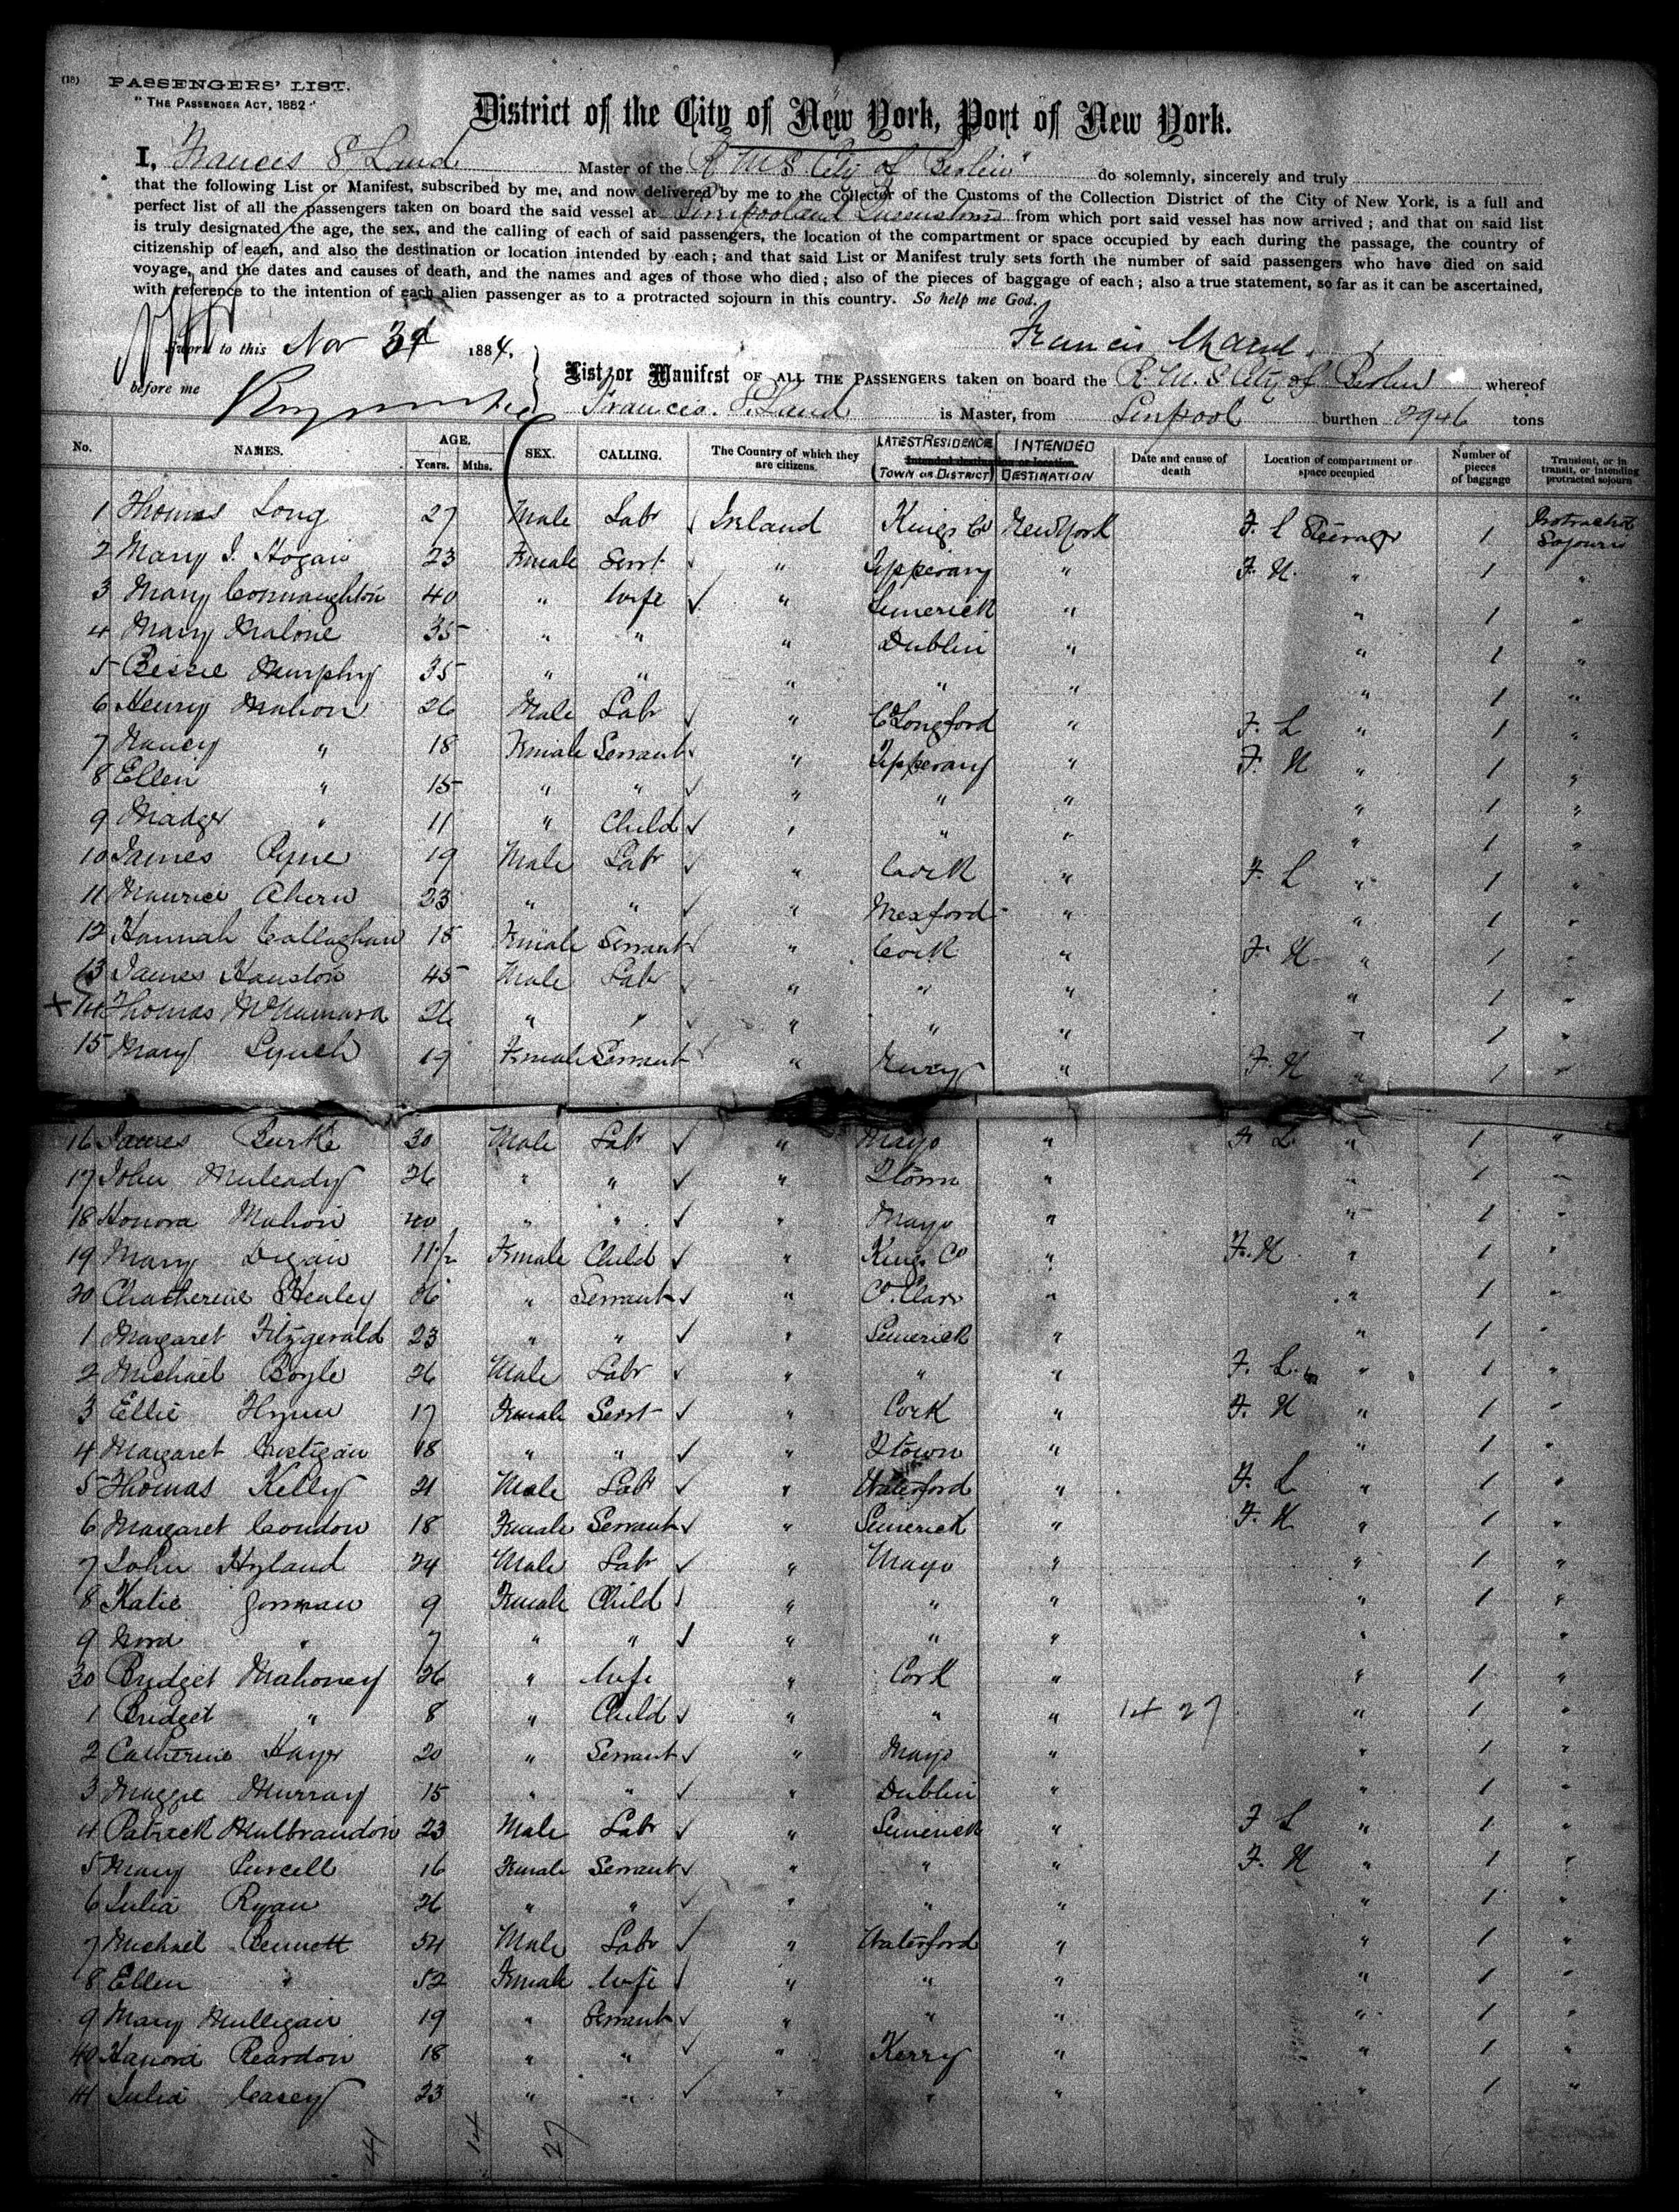 (18)
PASSENGERS' LIST.
"THE PASSENGER ACT, 1882"
District of the City of New York, Port of New York.
I, Francis S. Land Master of the R M S. City of Berlin" do solemnly, sincerely and truly
that the following List or Manifest, subscribed by me, and now delivered by me to the Collector of the Customs of the Collection District of the City of New York, is a full and
perfect list of all the passengers taken on board the said vessel at Liverpool and Queenstown from which port said vessel has now arrived; and that on said list
is truly designated the age, the sex, and the calling of each of said passengers, the location of the compartment or space occupied by each during the passage, the country of
citizenship of each, and also the destination or location intended by each; and that said List or Manifest truly sets forth the number of said passengers who have died on said
voyage, and the dates and causes of death, and the names and ages of those who died; also of the pieces of baggage of each; also a true statement, so far as it can be ascertained,
with reference to the intention of each alien passenger as to a protracted sojourn in this country. So help me God.
Sworn to this Nov 3d 1884. Francis S Land.
before me
List or Manifest OF ALL THE PASSENGERS taken on board the R. M. S City of Berlin whereof
Francis. S. Land is Master, from Liverpool burthen 2946 tons
No. NAMES. AGE. Years. Mths. SEX. CALLING. The Country of which they are citizens. LATEST RESIDENCE Intended destination or location. (TOWN OR DISTRICT) INTENDED DESTINATION Date and cause of death Location of compartment or space occupied Number of pieces of baggage Transient, or in transit, or intending protracted sojourn
1 Thomas Long 27 Male Labr Ireland Kings Co New York F. L Steerage 1 Protracted Sojourn
2 Mary J. Hogan 23 Female Servt " Tipperary " F. H. " 1 "
3 Mary Connaughton 40 " Wife " Limerick " " 1 "
4 Mary Malone 35 " " " Dublin " " 1 "
5 Bessie Murphy 35 " " " " " " 1 "
6 Henry Mahon 26 Male Labr " Co Longford " F. L " 1 "
7 Nancy " 18 Female Servant " Tipperary " F. H " 1 "
8 Ellen " 15 " " " " " " 1 "
9 Madge " 11 " Child " " " " 1 "
10 James Pyne 19 Male Labr " Cork " F. L " 1 "
11 Maurice Ahern 23 " " " Wexford " " 1 "
12 Hannah Callaghan 18 Female Servant " Cork " F. H " 1 "
13 James Houston 45 Male Labr " " " " 1 "
14 Thomas McNamara 26 " " " " " " 1 "
15 Mary Lynch 19 Female Servant " " F. H " 1 "
16 James Burke 30 Male Labr " Mayo " F L " 1 "
17 John Muleady 26 " " " Qtown " " 1 "
18 Honora Mahon 40 " " " Mayo " " 1 "
19 Mary Digan 11 1/2 Female Child " Kings Co " F. H " 1 "
20 Chatherine Henley 26 " Servant " Co. Clare " " 1 "
1 Margaret Fitzgerald 23 " " " Limerick " " 1 "
2 Michael Boyle 26 Male Labr " " " F. L. " 1 "
3 Ellie Flynn 17 Female Servt " Cork " F. H " 1 "
4 Margaret Costigan 18 " " " Qtown " " 1 "
5 Thomas Kelly 21 Male Labr " Waterford " F. L " 1 "
6 Margaret Condon 18 Female Servant " Limerick " F. H " 1 "
7 John Hyland 24 Male Labr " Mayo " " 1 "
8 Katie Gorman 9 Female Child " " " " 1 "
9 Nora " 7 " " " " " " "
30 Bridget Mahoney 26 " Wife " Cork " " 1 "
1 Bridget " 8 " Child " " " 14 27 " 1 "
2 Catherine Hayer 20 " Servant " Mayo " " 1 "
3 Maggie Murray 15 " " " Dublin " " 1 "
4 Patrick Mulbrandon 23 Male Labr " Limerick " F L " 1 "
5 Mary Purcell 16 Female Servant " " " F. H " 1 "
6 Julia Ryan 26 " " " " " " 1 "
7 Michael Bennett 54 Male Labr " Waterford " " 1 "
8 Ellen " 52 Female Wife " " " " 1 "
9 Mary Mulligan 19 " Servant " " " " 1 "
40 Hanora Reardon 18 " " " Kerry " " 1 "
41 Julia Casey 23 " " " " " " 1 "
41 14 27